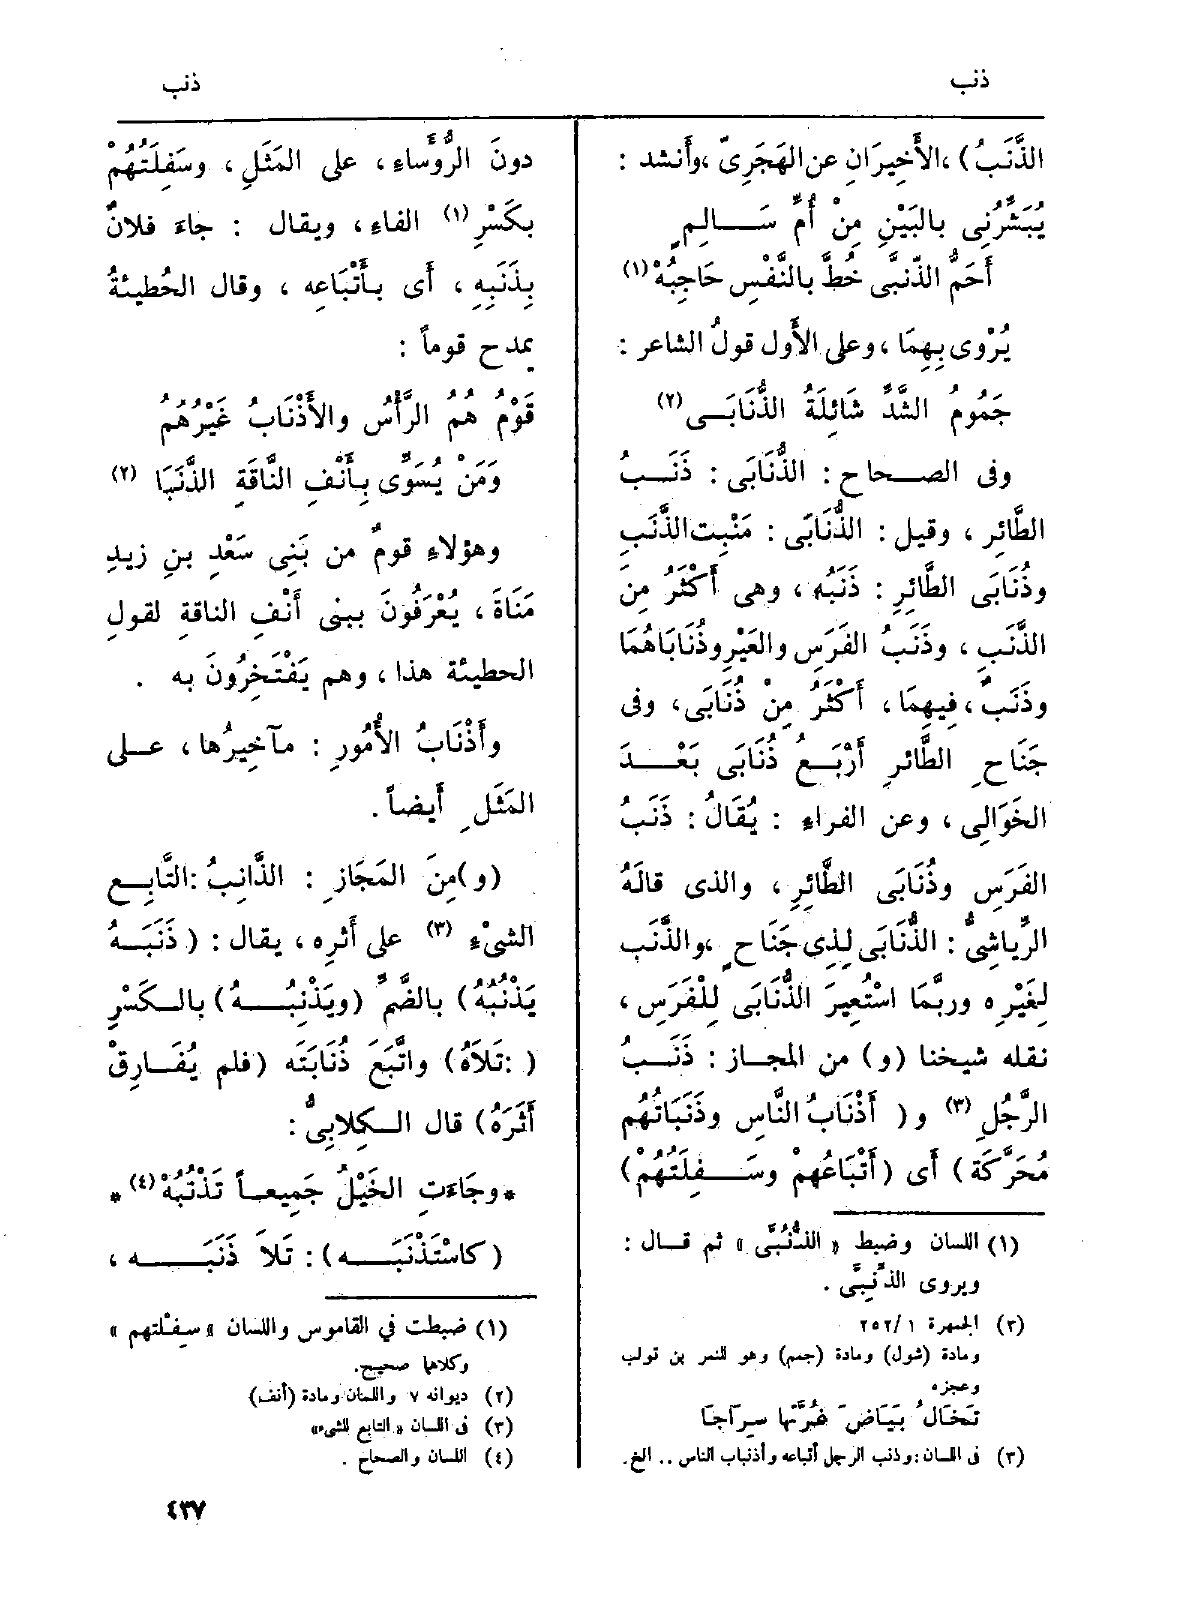 ذنب
ذنب
الذَّنَبُ) ، الأَخِيرَانِ عن الهَجَرِىّ ، وأنشد :
يُبَشِّرُنِى بالبَيْنِ مِنْ أُمِّ سَــالِمٍ
أَحَمُّ الذّنبَّى خُطَّ بالنَّفْسِ حَاجِبُهْ (١)
يُرْوى بِهِمَا ، وعلى الأَول قولُ الشاعر :
جَمُومُ الشَّدِّ شَائِلَةُ الذُّنَابَــى (٢)
وفى الصــحاح : الذُّنَابَى : ذَنَــبُ
الطَّائِرِ ، وقيل : الذُّنَابَى : مَنْبِت الذَّنَبِ
وذُنَابَى الطَّائِرِ : ذَنَبُه ، وهى أَكْثَرُ مِنَ
الذَّنَبِ ، وذَنَبُ الفَرَسِ والعَيْرِ وذُنَابَاهُمَا
وذَنَبٌ ، فِيهِمَا ، أَكْثَرُ مِنْ ذُنَابَى ، وفى
جَنَاحِ الطَّائرِ أَرْبَــعُ ذُنَابَى بَعْــدَ
الخَوَالِى ، وعن الفراءِ : يُقَالُ : ذَنَبُ
الفَرَسِ وذُنَابَى الطَّائِرِ ، والذى قالَهُ
الرِّياشِىُّ : الذُّنَابَى لِذِى جَنَاحٍ ، والذَّنَب
لِغَيْرِه وربَّمَا اسْتُعِيرَ الذُّنَابَى لِلْفَرَسِ ،
نقله شيخنا (و) من المجــاز : ذَنَــبُ
الرَّجُلِ (٣) و ( أَذْنَابُ النَّاسِ وذَنَبَاتُهُم
مُحَرَّكَة) أَى (أَتْبَاعُهمْ وسَــفِلَتُهُمْ)
(١) اللسان وضبط « الذُّنُبَّى » ثم قــال :
ويروى الذِّنِبَّى .
(٢) الجمهرة ٢٥٢/١
ومادة (شول) ومادة (جمم) وهو للنمر بن تولب
وعجزه
تَخَالُ بَيَاضَ غُرَّتِها سِرَاجَا
(٣) فى اللسان : وذنب الرجل أتباعه وأذناب الناس .. الخ.
دونَ الرُّؤَساءِ ، على المَثَلِ ، وسَفِلَتُهُمْ
بكَسْرِ (١) الفاءِ ، ويقال : جاءَ فلانٌ
بِذَنَبِهِ ، أَى بأَتْبَاعِه ، وقال الحُطيئةُ
يمدح قوماً :
قَوْمٌ هُمُ الرَّأْسُ والأَذْنَابُ غَيْرُهُمُ
وَمَنْ يُسَوِّى بِأَنْفِ النَّاقَةِ الذَّنَبَا (٢)
وهؤلاءِ قومٌ من بَنِى سَعْدِ بنِ زيدِ
مَنَاةَ ، يُعْرَفُونَ ببنى أَنْفِ الناقةِ لقولِ
الحطيئة هذا ، وهم يَفْتَخِرُونَ به .
وأَذْنَابُ الأُمُورِ : مآخِيرُها ، عــلى
المَثَلِ أَيضاً .
(و) مِنَ المَجَازِ : الذَّانِبُ : التَّابِــع
الشىْءِ (٣) على أَثَرِه ، يقال : ( ذَنَبَــهُ
يَذْنُبُهُ) بالضَّمِّ (ويَذْنِبُــهُ) بالــكَسْرِ
( : تَلاَهُ) واتَّبَعَ ذُنَابَتَه (فلم يُفَــارِقْ
أَثَرَهُ) قال الــكِلابِىُّ :
* وجَاءَتِ الخَيْلُ جَمِيعــاً تَذْنُبُهْ (٤) *
( كاسْتَذْنَبَــه ) : تَلاَ ذَنَبَــه ،
(١) ضبطت في القاموس واللسان « سِفْلتهم »
وكلاهما صحيح.
(٢) ديوانه ٧ واللسان ومادة (أنف)
(٣) فى اللسان « التابع للشىء»
(٤) اللسان والصحاح .
٤٣٧